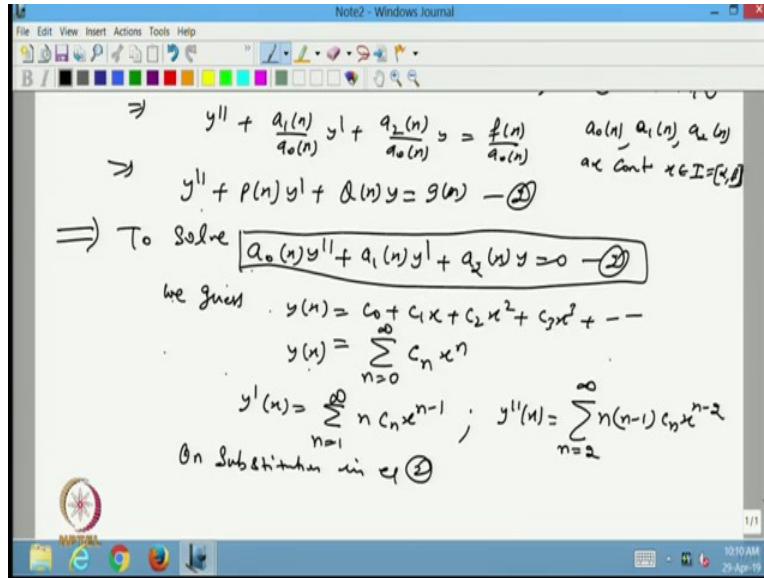 Note2 - Windows Journal
File Edit View Insert Actions Tools Help
B I
⇒ y'' + a₁(x)/a₀(x) y' + a₂(x)/a₀(x) y = f(x)/a₀(x)
a₀(x), a₁(x), a₂(x)
are cont x ∈ I = [α, β]
⇒ y'' + P(x) y' + Q(x) y = g(x) — ②
⇒ To solve a₀(x) y'' + a₁(x) y' + a₂(x) y = 0 — ②
we guess y(x) = c₀ + c₁x + c₂x² + c₃x³ + --
y(x) = ∑_{n=0}^{∞} cₙ xⁿ
y'(x) = ∑_{n=1}^{∞} n cₙ xⁿ⁻¹ ; y''(x) = ∑_{n=2}^{∞} n(n-1) cₙ xⁿ⁻²
On Substitution in eq ②
NPTEL
1/1
10:10 AM
29-Apr-19